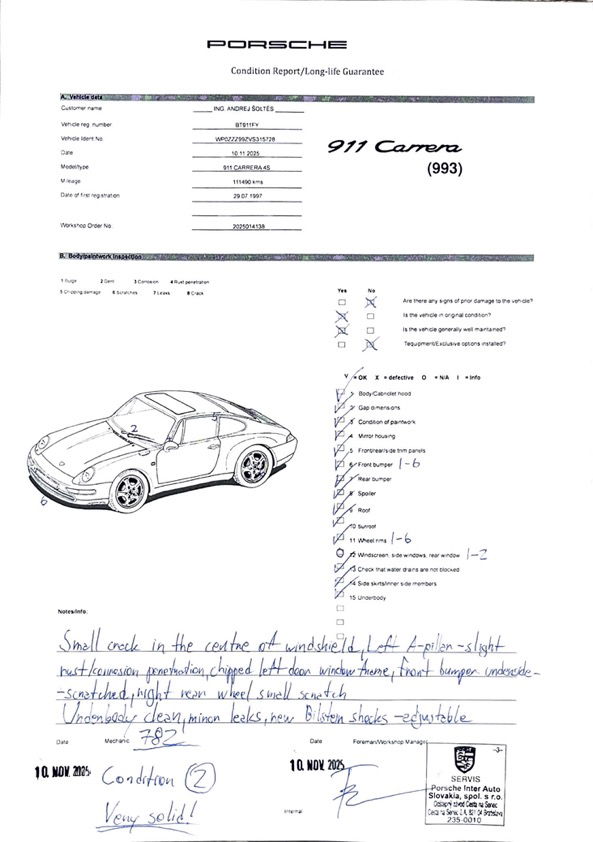 PORSCHE
Condition Report/Long-life Guarantee
A. Vehicle data
Customer name ING. ANDREJ ŠOLTÉS
Vehicle reg. number BT911FY
Vehicle Ident No. WP0ZZZ99ZVS315728
Date 10.11.2025
Model/type 911 CARRERA 4S
Mileage 111490 kms
Date of first registration 29.07.1997
Workshop Order No. 2025014138
911 Carrera
(993)
B. Body/paintwork inspection
1 Bulge 2 Dent 3 Corrosion 4 Rust penetration
5 Chipping damage 6 Scratches 7 Leaks 8 Crack
Yes No
Are there any signs of prior damage to the vehicle?
Is the vehicle in original condition?
Is the vehicle generally well maintained?
Tequipment/Exclusive options installed?
V = OK X = defective O = N/A I = Info
1 Body/Cabriolet hood
2 Gap dimensions
3 Condition of paintwork
4 Mirror housing
5 Front/rear/side trim panels
6 Front bumper 1-6
7 Rear bumper
8 Spoiler
9 Roof
10 Sunroof
11 Wheel rims 1-6
12 Windscreen, side windows, rear window 1-2
13 Check that water drains are not blocked
14 Side skirts/inner side members
15 Underbody
2
6
Notes/info:
Small crack in the centre of windshield, Left A-pillar -slight
rust/corrosion penetration, chipped left door window frame, front bumper underside-
-scratched, right rear wheel small scratch
Underbody clean, minor leaks, new Bilstein shocks -adjustable
Date Mechanic 782 Date Foreman/Workshop Manager
10. NOV. 2025 10. NOV. 2025
Condition 2
Very solid!
Internal
-3-
SERVIS
Porsche Inter Auto
Slovakia, spol. s r.o.
Odštepný závod Cesta na Senec
Cesta na Senec 2.A, 821 04 Bratislava
235-0010